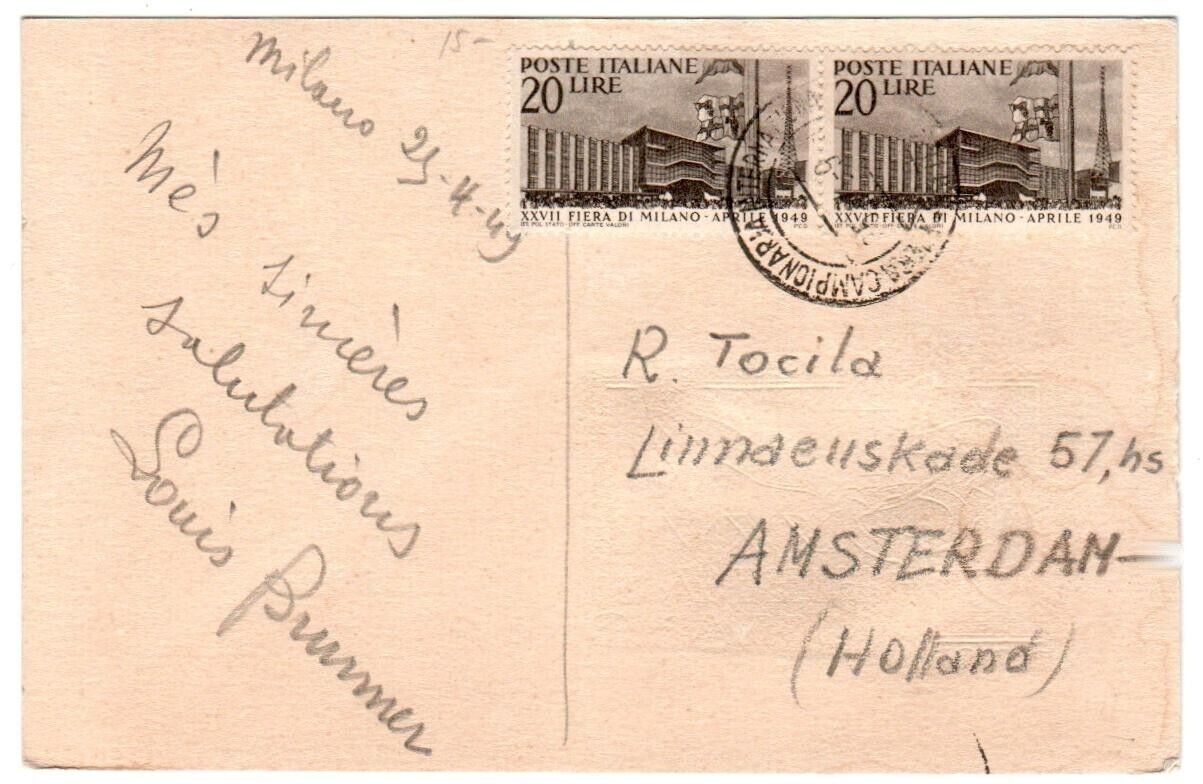 15-
Milano 25-4-49
Més
sinières
salutations
Louis Brunner
POSTE ITALIANE
20 LIRE
XXVII FIERA DI MILANO - APRILE 1949
IST. POL. STATO - OFF. CARTE VALORI P.C.D.
POSTE ITALIANE
20 LIRE
XXVII FIERA DI MILANO - APRILE 1949
IST. POL. STATO - OFF. CARTE VALORI P.C.D.
CAMPIONARIA
R. Tocila
Linnaeuskade 57, hs
AMSTERDAN
(Holland)